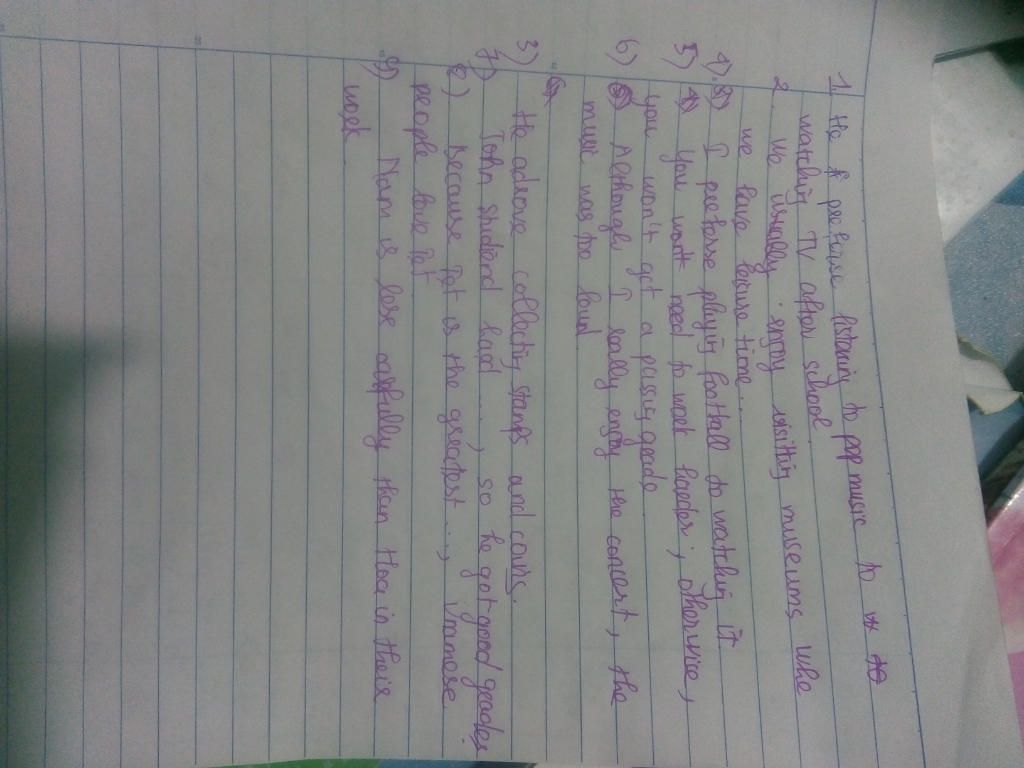 1. He preferse listening to pop music to
watching TV after school.
2. We usually enjoy visiting museums whe
we have leisure time...
4). I preferse playing football to watching it
5) You want need to work harder, otherwice,
you won't get a passing grade
6) Although I really enjoy the concert, the
music was too loud
3) He adrore collecting stamps and coins.
7) John studierd hard ..., so he got good grades
8) Because Tet is the greatest..., Vnamese
people love Tet
9) Nam is lese carefully than Hoa in their
work